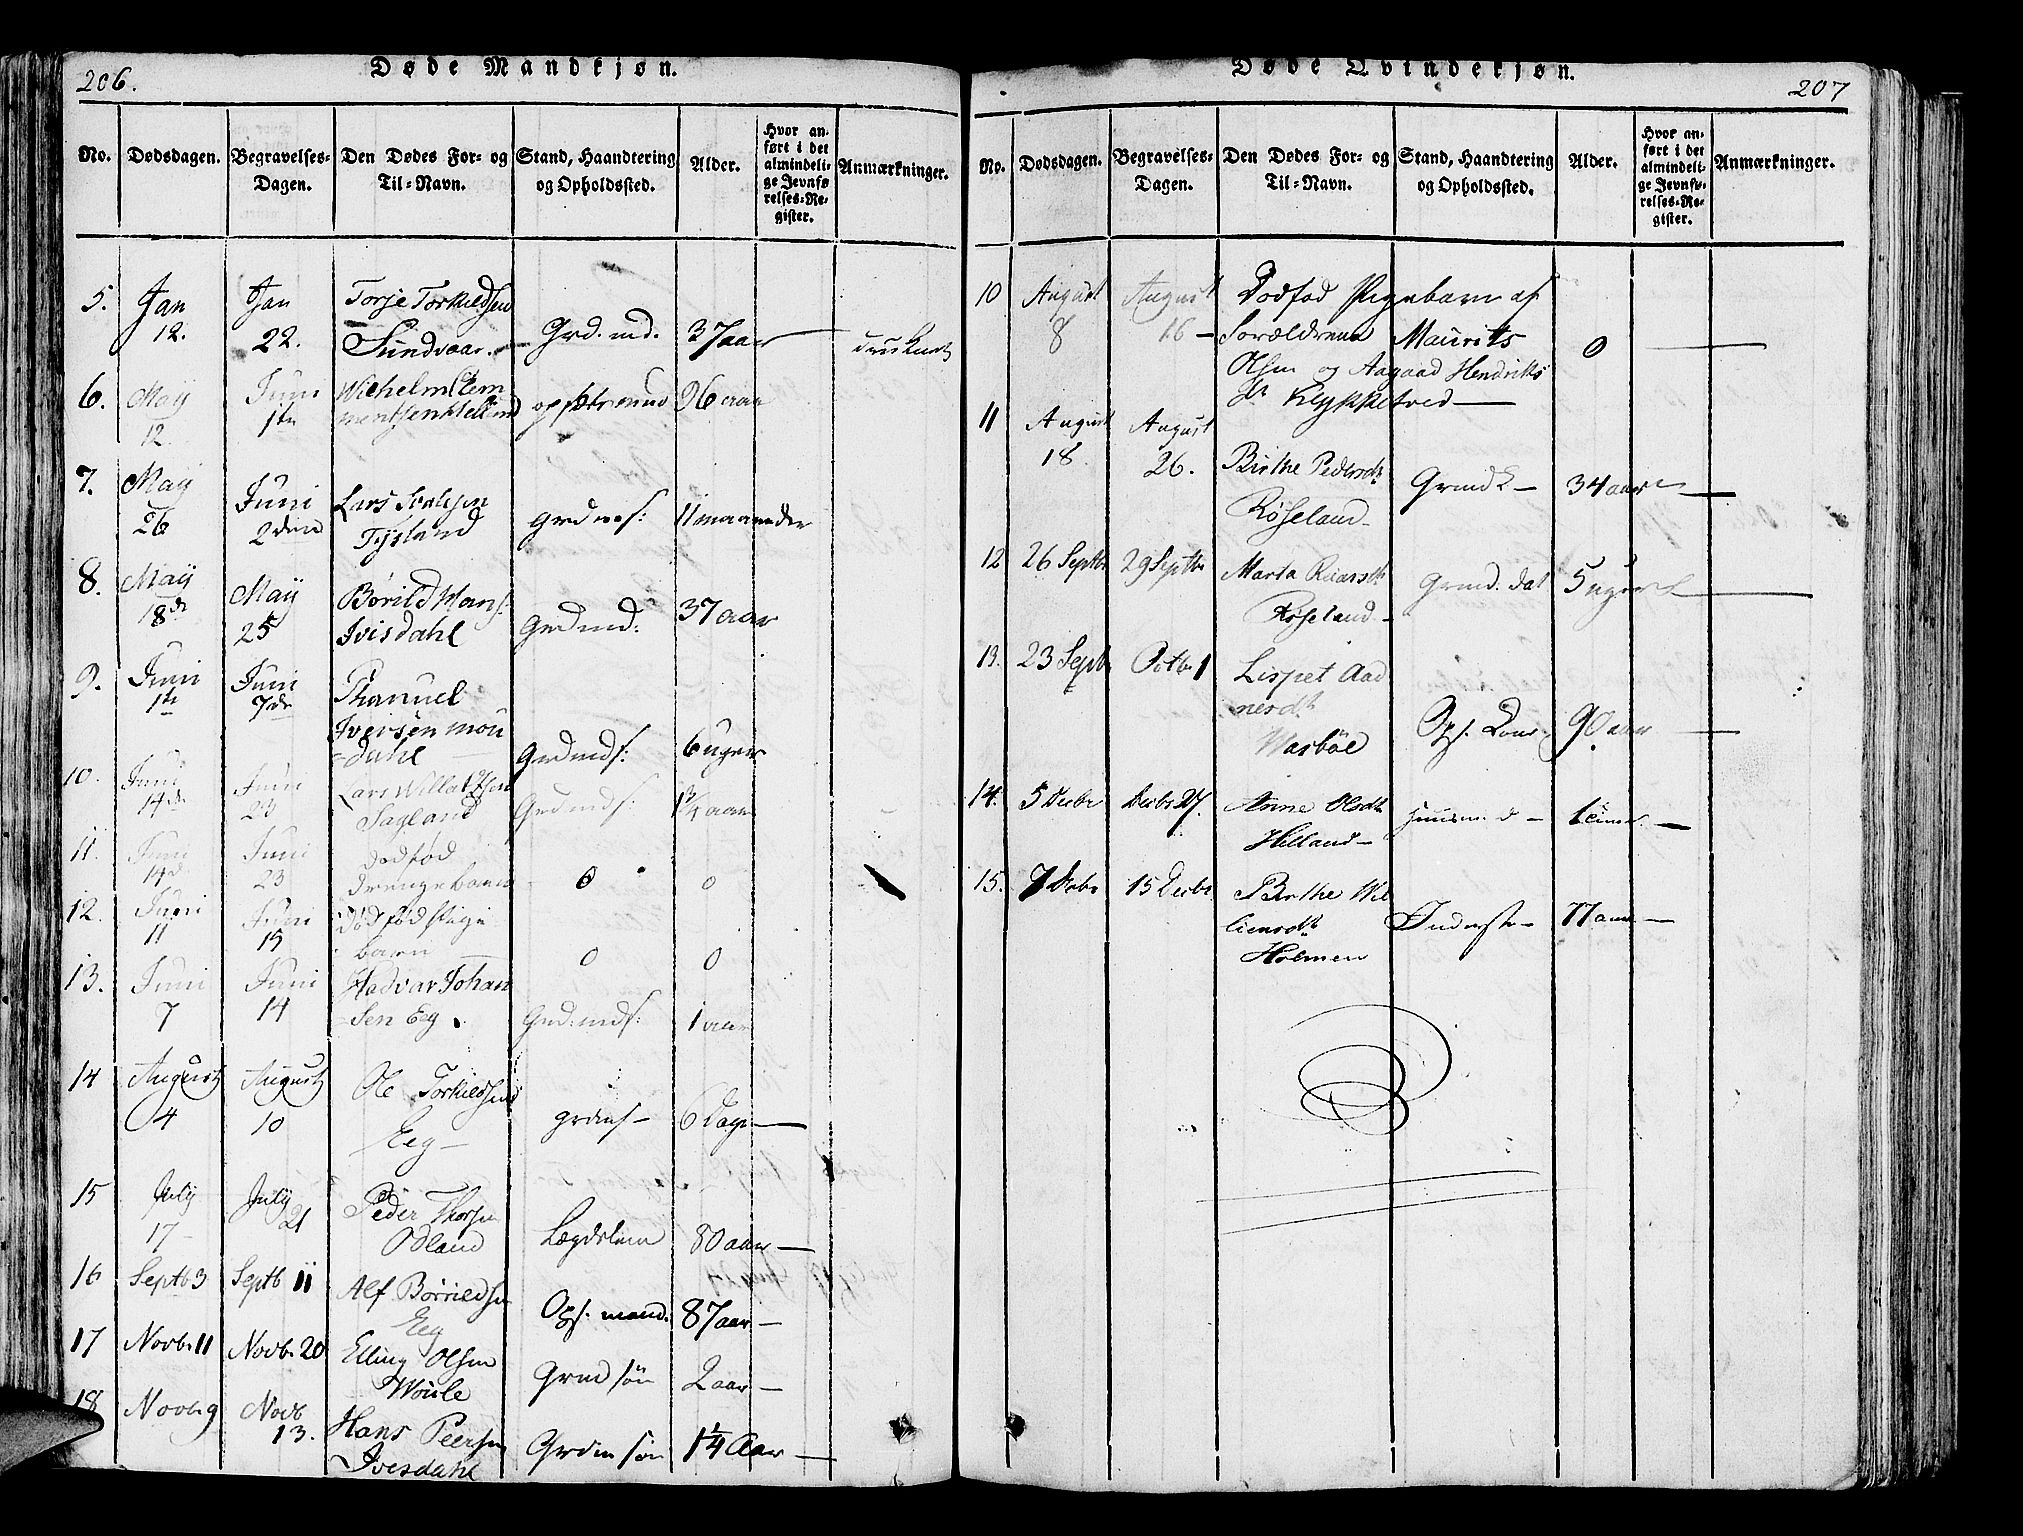 206.
Døde Mandkjøn.
No.
Dødsdagen.
Begravelses-
Dagen.
Den Dødes For- og
Til-Navn.
Stand, Haandtering
og Opholdssted.
Alder.
Hvor an-
ført i det
almindeli-
ge Jevnfø-
relses-Re-
gister.
Anmærkninger.
5.
Jan
12.
Jan
22.
Torje Torkildsen
Sundvaar.
Grd. md.
37 aar
druknet
6.
Maij
12
Juni
1te
Wilhelm Clem
mentsen Helland
96 aar
7.
Maij
26
Juni
2den
Lars
Tysland
Grdms:
11 maaneder
8.
Maij
18de
Maij
25
Børild Mons:
Ivisdahl
Grdmd:
37 aar
9.
Juni
1te
Juni
7de
Thanuel
Iversen Mou
dahl
Grdmds:
6 uger
10.
Juni
14de
Juni
23
Lars Willadsen
Sagland
Grdmds:
1 3/4 aar
11.
Juni
14d
Juni
23
dødfød
drengebarn
0
0
12.
Juni
11
Juni
15
dødfød Pige
barn
0
0
13.
Juni
7
Juni
14
Hadvar Johan
sen Eg.
Grd:mds:
1 aar
14
August
4
August
10
Ole Torkildsen
Eeg
grdms
6 Dage
15
July
17
July
21
Peder Thorsen
Odland
Lægdslem
80 aar
16
Septb 3
Septb 11
Alf Børrildsen
Eeg
Ops. mand.
87 aar
17
Novbr 11
Novbr 20
Elling Olsen
Woule
Grmd søn
2 aar
18
Novbr 9
Novb
13.
Hans Peersen
Ivesdahl
Grdm søn
1 1/4 Aar
Døde Qvindekjøn.
207
No.
Dødsdagen.
Begravelses-
Dagen.
Den Dødes For- og
Til-Navn.
Stand, Haandtering
og Opholdssted.
Alder.
Hvor an-
ført i det
almindeli-
ge Jevnfø-
relses-Re-
gister.
Anmærkninger.
10
August
8
August
16
Dødfød Pigebarn af
Forældrene Maurits
Olsen og Aagaad Hendriks
dtr Klykketved
0
11
August
18
August
26.
Birthe Pedersdtr
Røseland
Grmd
34 aar
12
26 Septbr
29 Septbr
Marta
Røseland
Grmd: dat
5 uger
13.
23 Septb
Octbr 1
Lispet Aad
nesdtr
Warbøe
Ops. Kone
90 aar
14.
5 Decbr
Decbr 27.
Anne Olsdtr
Helland
huusmd
15.
7 Decbr
15 Decbr
Birthe Wil
liemsdtr
Holmen
Inderste
77 aar